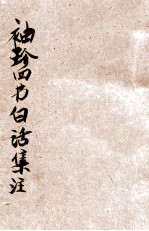 袖珍四书白话集注